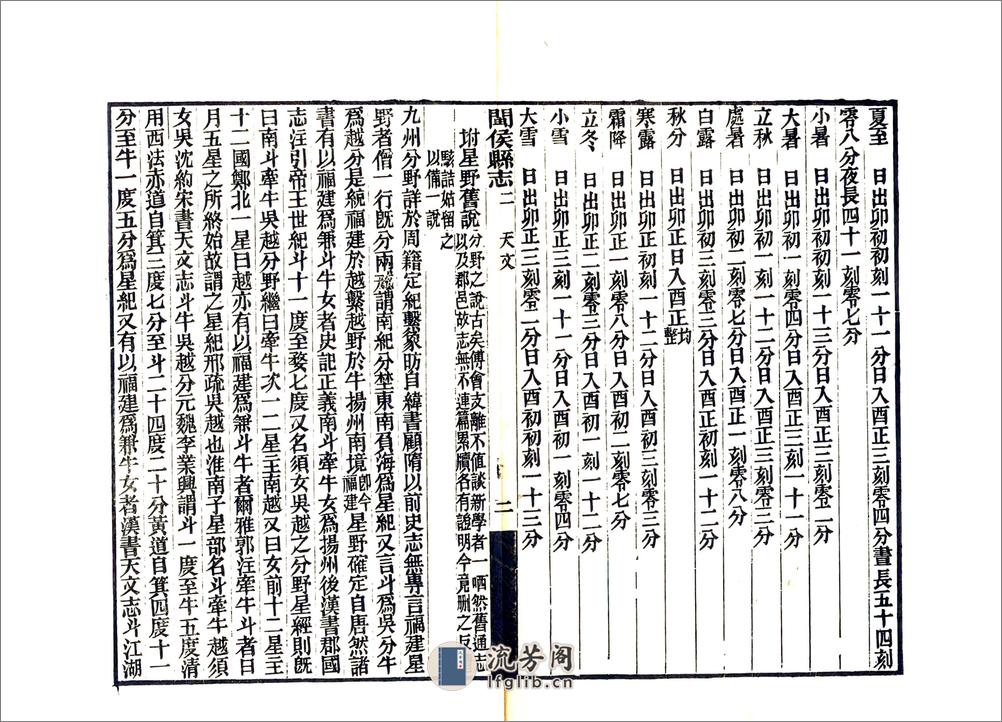 夏至　日出卯初初刻一十一分日入酉正三刻零四分晝長五十四刻
零八分夜長四十一刻零七分
小暑　日出卯初初刻一十三分日入酉正三刻零二分
大暑　日出卯初一刻零四分日入酉正二刻一十一分
立秋　日出卯初一刻一十二分日入酉正二刻零三分
處暑　日出卯初二刻零七分日入酉正一刻零八分
白露　日出卯初三刻零二分日入酉正初刻一十二分
秋分　日出卯正日入酉正均整
寒露　日出卯正初刻一十二分日入酉初三刻零三分
霜降　日出卯正一刻零八分日入酉初二刻零七分
立冬　日出卯正二刻零三分日入酉初一刻一十二分
小雪　日出卯正二刻一十一分日入酉初一刻零四分
大雪　日出卯正三刻零二分日入酉初初刻一十三分
閩侯縣志二　天文　二
坿星野舊說分野之說古矣傅會支離不值談新學者一哂然舊通志以及郡邑故志無不連篇累牘各有證明今竟刪之反
駭詰姑留之以備一說
九州分野詳於周籍定紀繫彖昉自緯書顧隋以前史志無專言福建星
野者僧一行旣分兩戒謂南紀分埜東南負海爲星紀又言斗爲吳分牛
爲越分是統福建於越繫越野於牛揚州南境卽今福建星野確定自唐然諸
書有以福建爲兼斗牛女者史記正義南斗牽牛女爲揚州後漢書郡國
志注引帝王世紀斗十一度至婺七度又名須女吳越之分野星經則旣
曰南斗牽牛吳越分野繼曰牽牛次一二星主南越又曰女前十二星主
十二國鄭北一星曰越亦有以福建爲兼斗牛者爾雅郭注牽牛斗者日
月五星之所終始故謂之星紀邢疏吳越也淮南子星部名斗牽牛越須
女吳沈約宋書天文志斗牛吳越分元魏李業興謂斗一度至牛五度清
用西法赤道自箕三度七分至斗二十四度二十分黃道自箕四度十一
分至牛一度五分爲星紀又有以福建爲兼牛女者漢書天文志斗江湖
流芳阁
lfglib.cn